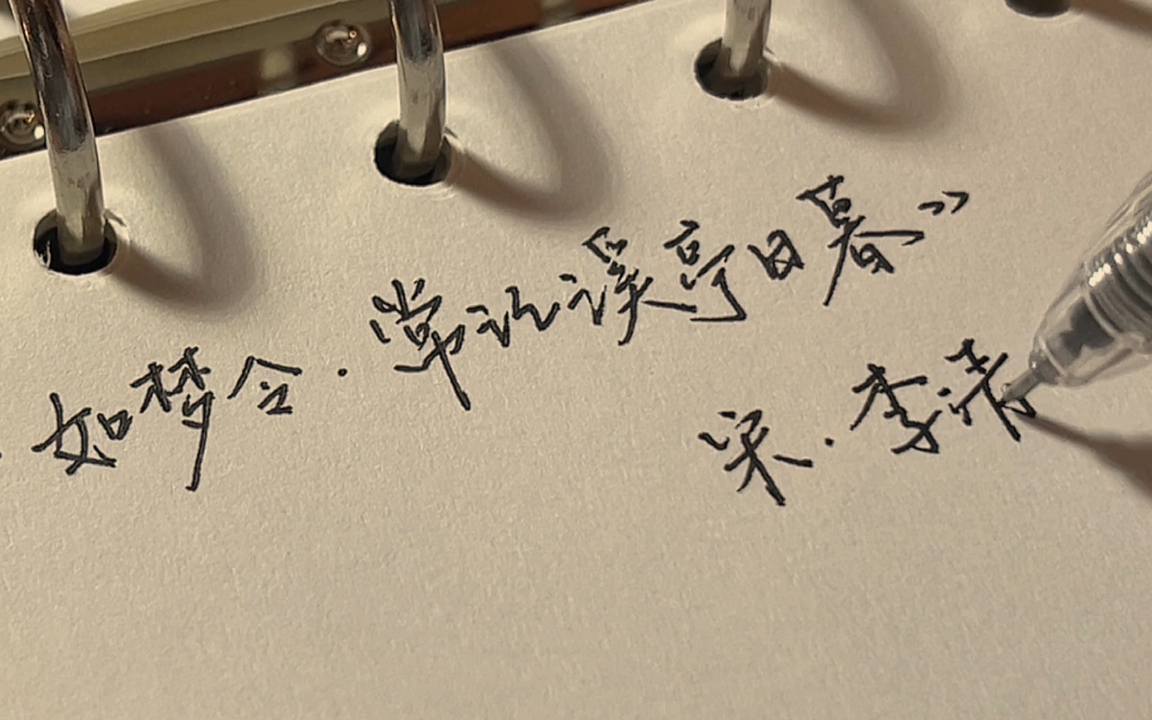 如梦令·常记溪亭日暮》
宋·李清